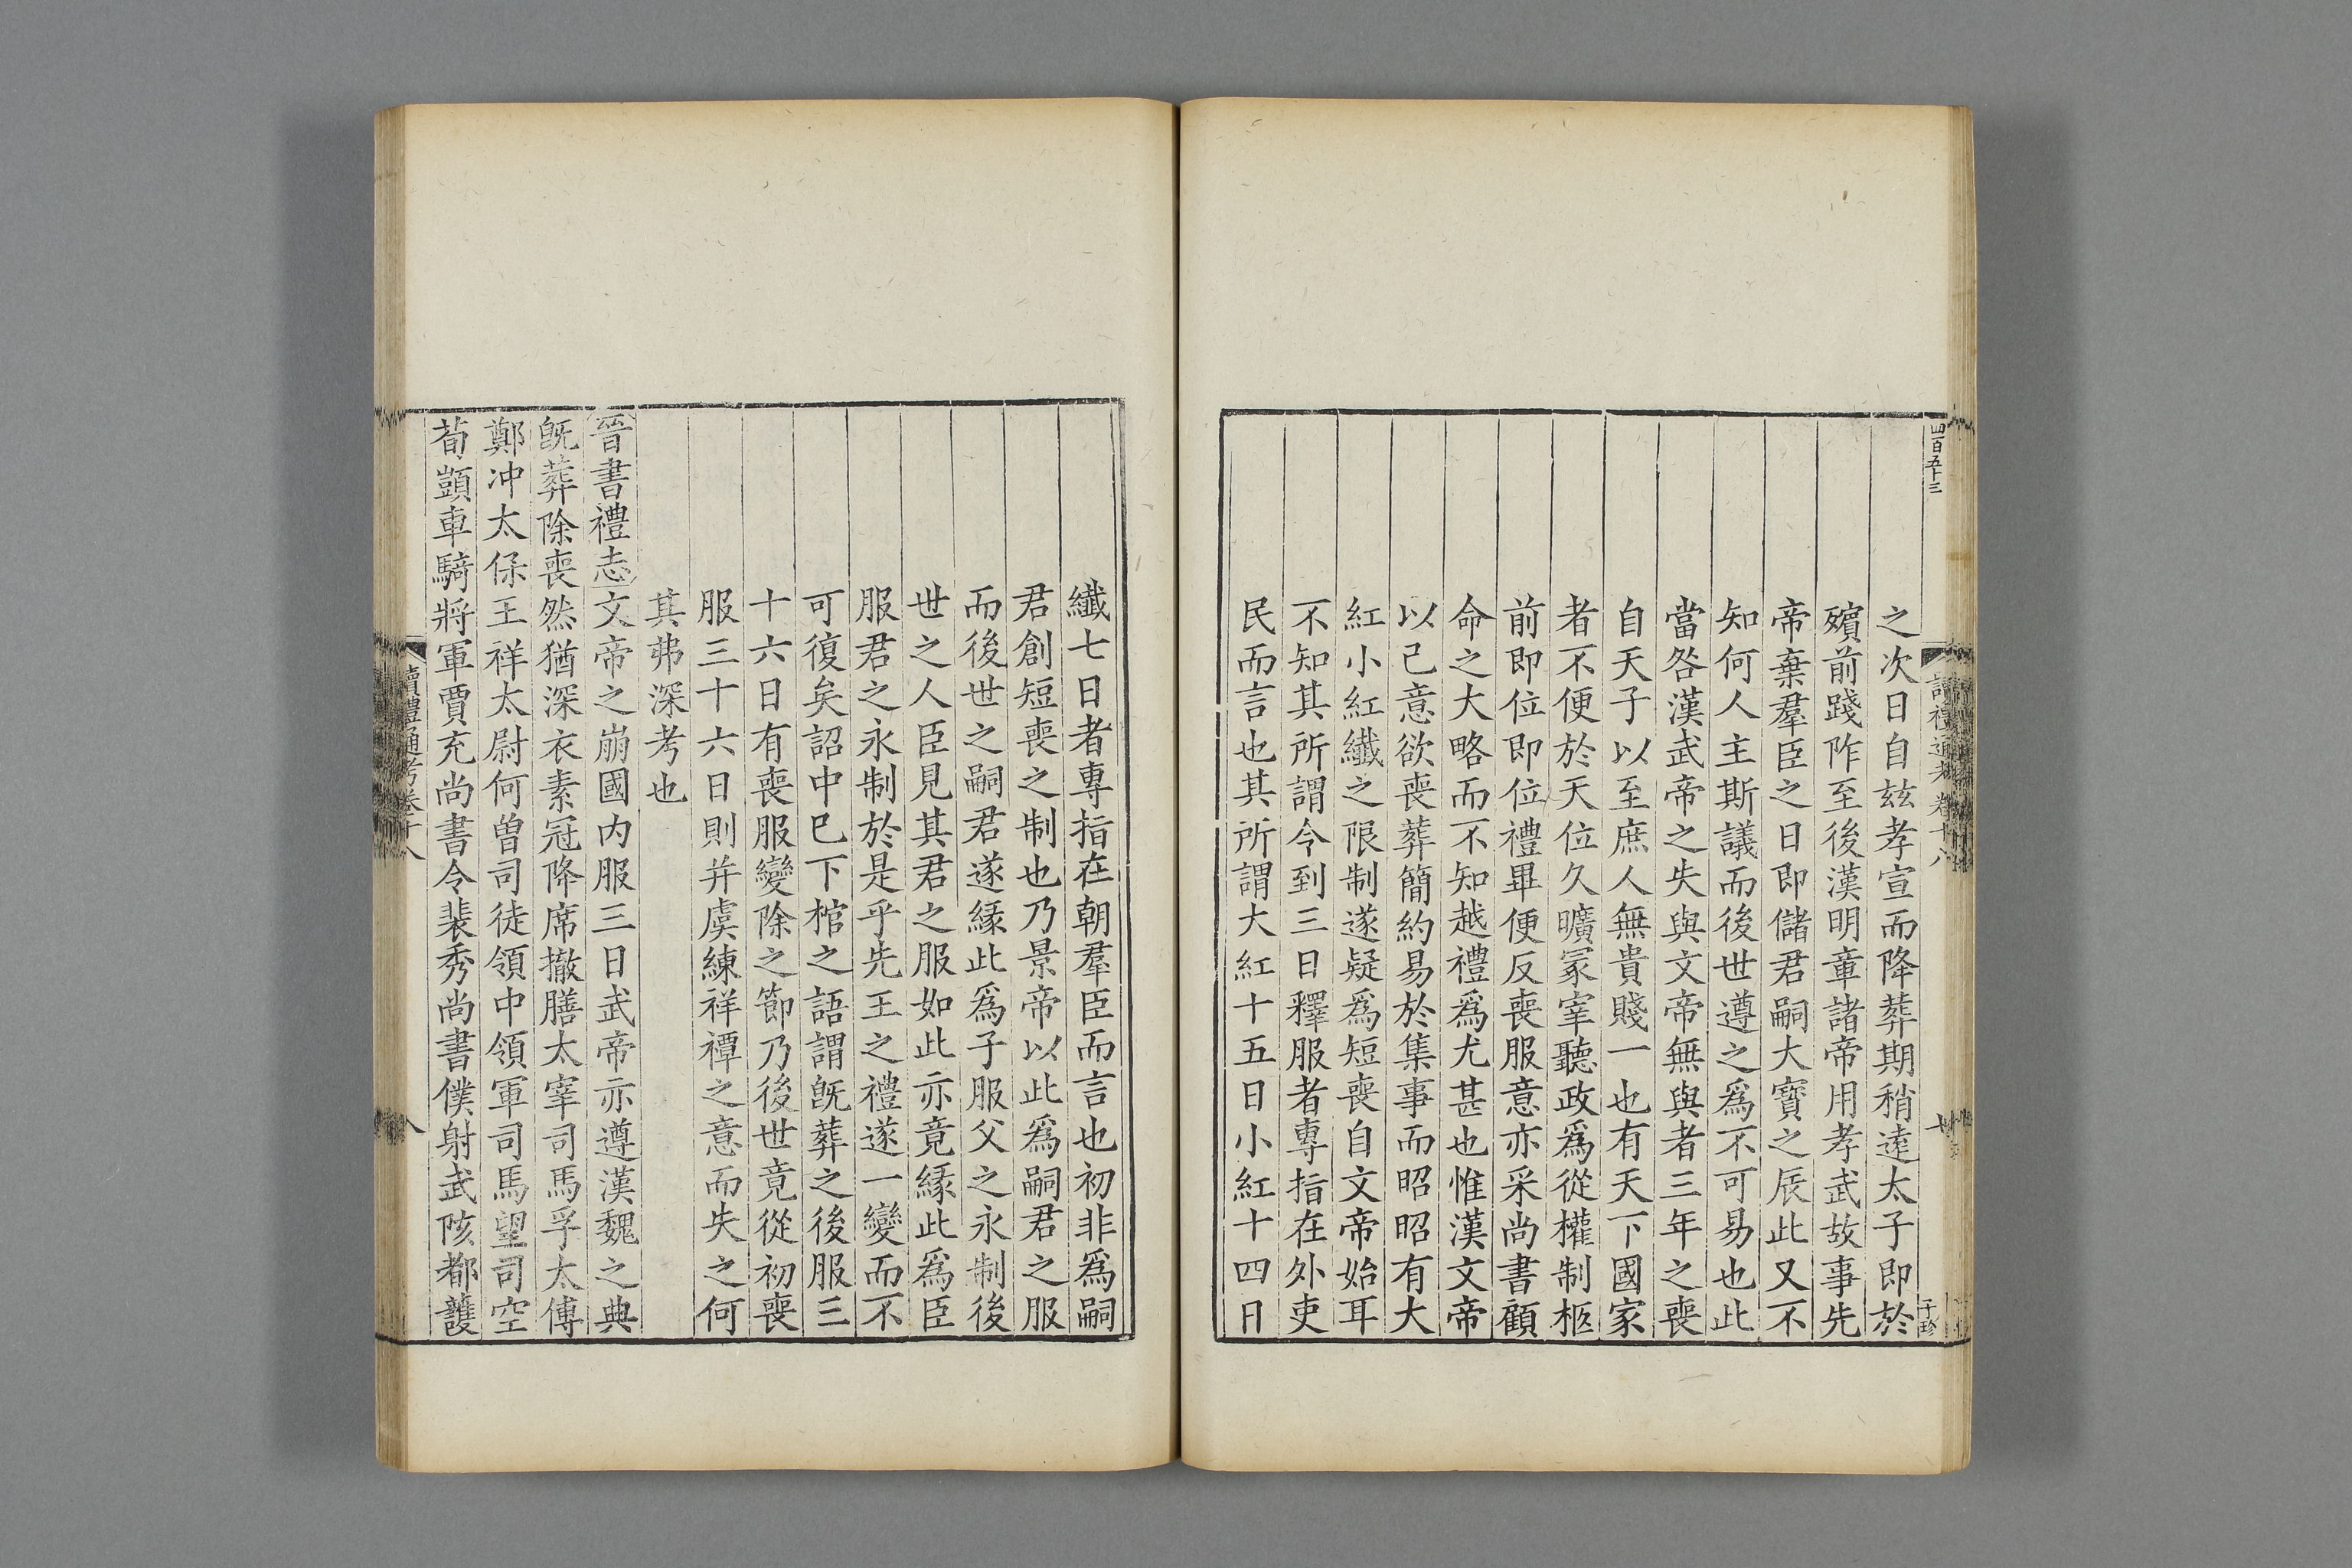 四百五十三
之次日自茲孝宣而降葬期稍遠太子即於
殯前踐阼至後漢明章諸帝用孝武故事先
帝棄羣臣之日即儲君嗣大寶之辰此又不
知何人主斯議而後世遵之爲不可易也此
當咎漢武帝之失與文帝無與者三年之喪
自天子以至庶人無貴賤一也有天下國家
者不便於天位久曠冡宰聽政爲從權制柩
前即位即位禮畢便反喪服意亦采尚書顧
命之大略而不知越禮爲尤甚也惟漢文帝
以己意欲喪葬簡約易於集事而昭昭有大
紅小紅纖之限制遂疑爲短喪自文帝始耳
不知其所謂令到三日釋服者專指在外吏
民而言也其所謂大紅十五日小紅十四日
纖七日者專指在朝羣臣而言也初非爲嗣
君創短喪之制也乃景帝以此爲嗣君之服
而後世之嗣君遂緣此爲子服父之永制後
世之人臣見其君之服如此亦竟緣此爲臣
服君之永制於是乎先王之禮遂一變而不
可復矣詔中巳下棺之語謂旣葬之後服三
十六日有喪服變除之節乃後世竟從初喪
服三十六日則并虞練祥禫之意而失之何
其弗深考也
晉書禮志文帝之崩國内服三日武帝亦遵漢魏之典
旣葬除喪然猶深衣素冠降席撤膳太宰司馬孚太傅
鄭冲太保王祥太尉何曾司徒領中領軍司馬望司空
荀顗車騎將軍賈充尚書令裴秀尚書僕射武陔都護
讀禮通考卷十八